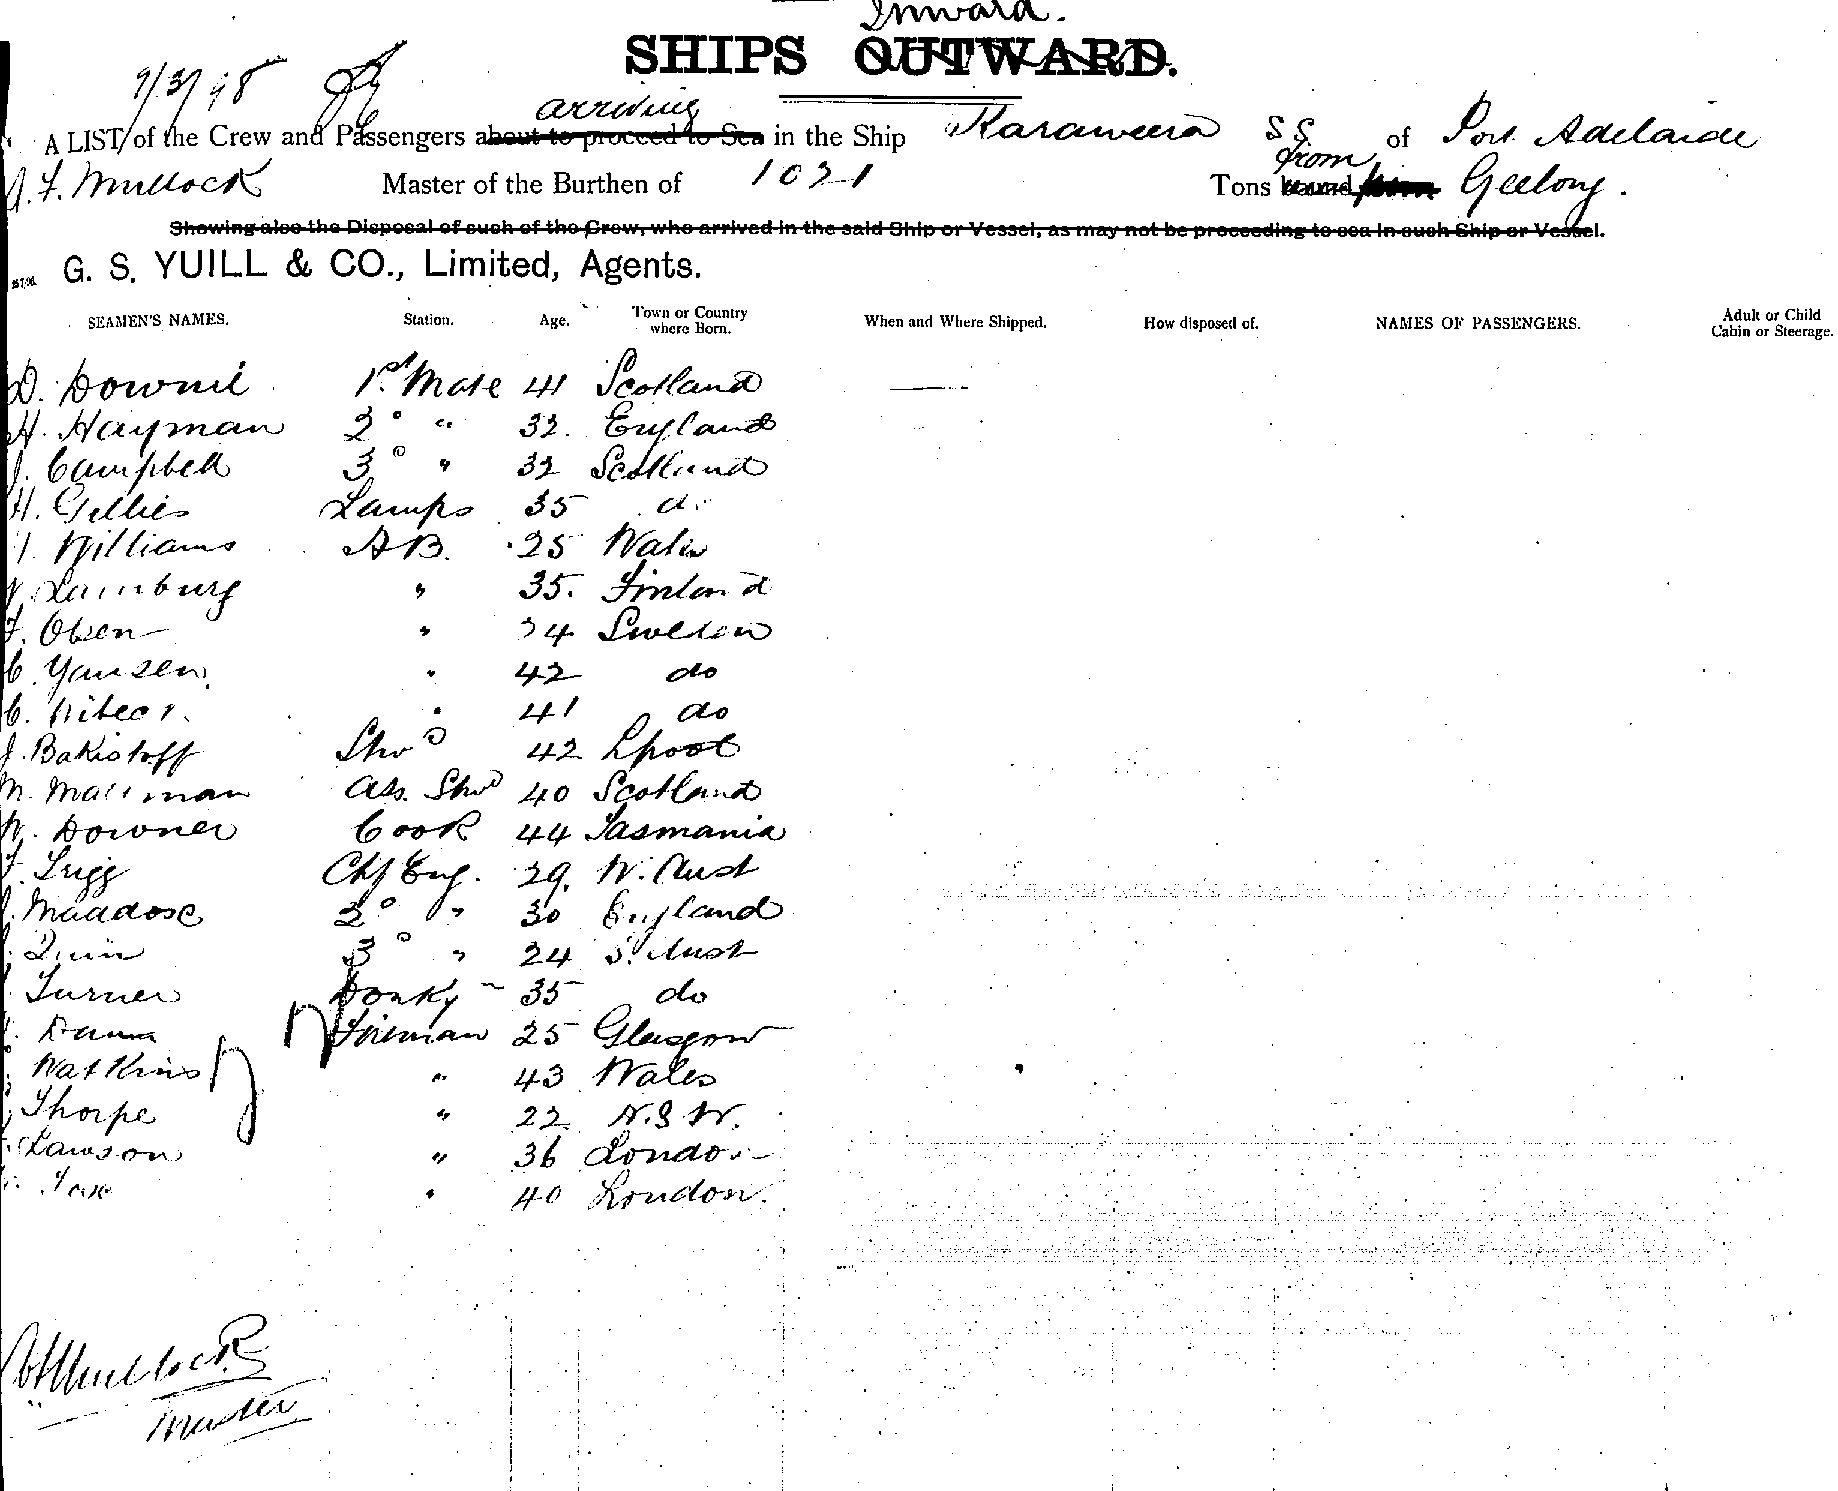 Inward.
SHIPS OUTWARD.
9/3/98
arriving
A LIST of the Crew and Passengers about to proceed to Sea in the Ship Karaweera SS of Port Adelaide
from
Mullock Master of the Burthen of 1021 Tons Geelong.
Showing also the Disposal of such of the Crew, who arrived in the said Ship or Vessel, as may not be proceeding to sea in such Ship or Vessel.
G. S. YUILL & CO., Limited, Agents.
SEAMEN'S NAMES. Station. Age. Town or Country where Born. When and Where Shipped. How disposed of. NAMES OF PASSENGERS. Adult or Child Cabin or Steerage.
D. Downie 1st Mate 41 Scotland
H. Hayman 2° " 32. England
J. Campbell 3° " 32 Scotland
H. Gillies Lamps 35 do
Williams AB. 25 Wales
" 35. Finland
F. Olsen " 34 Sweden
C. Yansen " 42 do
C. " 41 do
J. Bakistoff Stwd 42 Lpool
M. Ass. Stwd 40 Scotland
W. Downer Cook 44 Tasmania
F. Trigg Chf Eng. 29. W. Aust
Maddose 2° " 30 England
Quin 3° " 24 S. Aust
Turner Donky 35 do
Fireman 25 Glasgow
Watkins " 43 Wales
Thorpe " 22 N.S.W.
Lawson " 36 London
" 40 London.
Mullock
Master